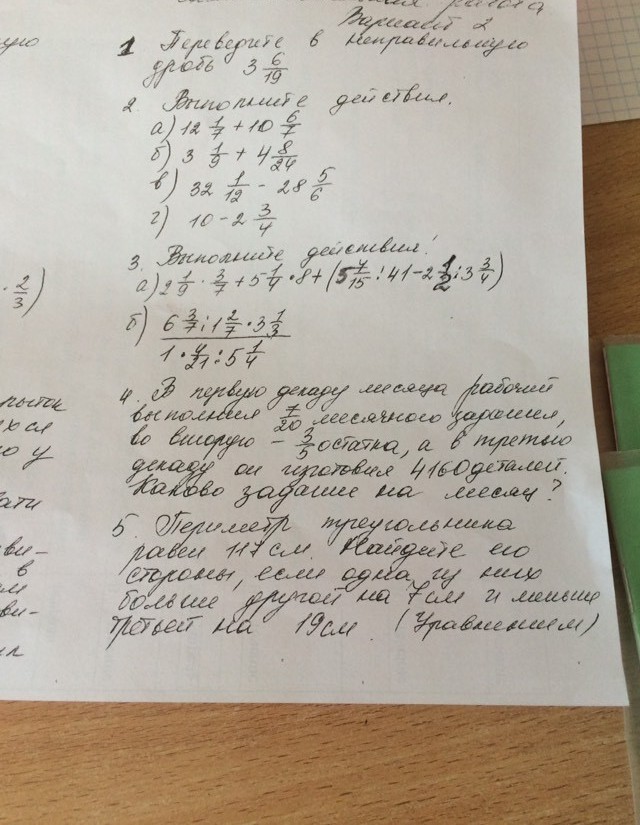 работа
Вариант 2
1 Переведите в неправильную
дробь 3 6/19
2. Выполните действия.
а) 12 1/7 + 10 6/7
б) 3 1/9 + 4 8/24
в) 32 1/12 - 28 5/6
г) 10 - 2 3/4
3. Выполните действия!
а) 2 1/9 · 3/7 + 5 1/4 · 8 + (5 7/15 : 41 - 2 1/2 : 3 3/4)
б) 6 3/7 : 1 2/7 · 3 1/3
1 · 4/21 : 5 1/4
4. В первую декаду месяца рабочий
выполнил 7/20 месячного задания,
во вторую - 3/5 остатка, а в третью
декаду он изготовил 4160 деталей.
Каково задание на месяц?
5. Периметр треугольника
равен 117 см. Найдите его
стороны, если одна из них
больше другой на 7 см и меньше
третьей на 19 см. (Уравнением)
· 2/3)